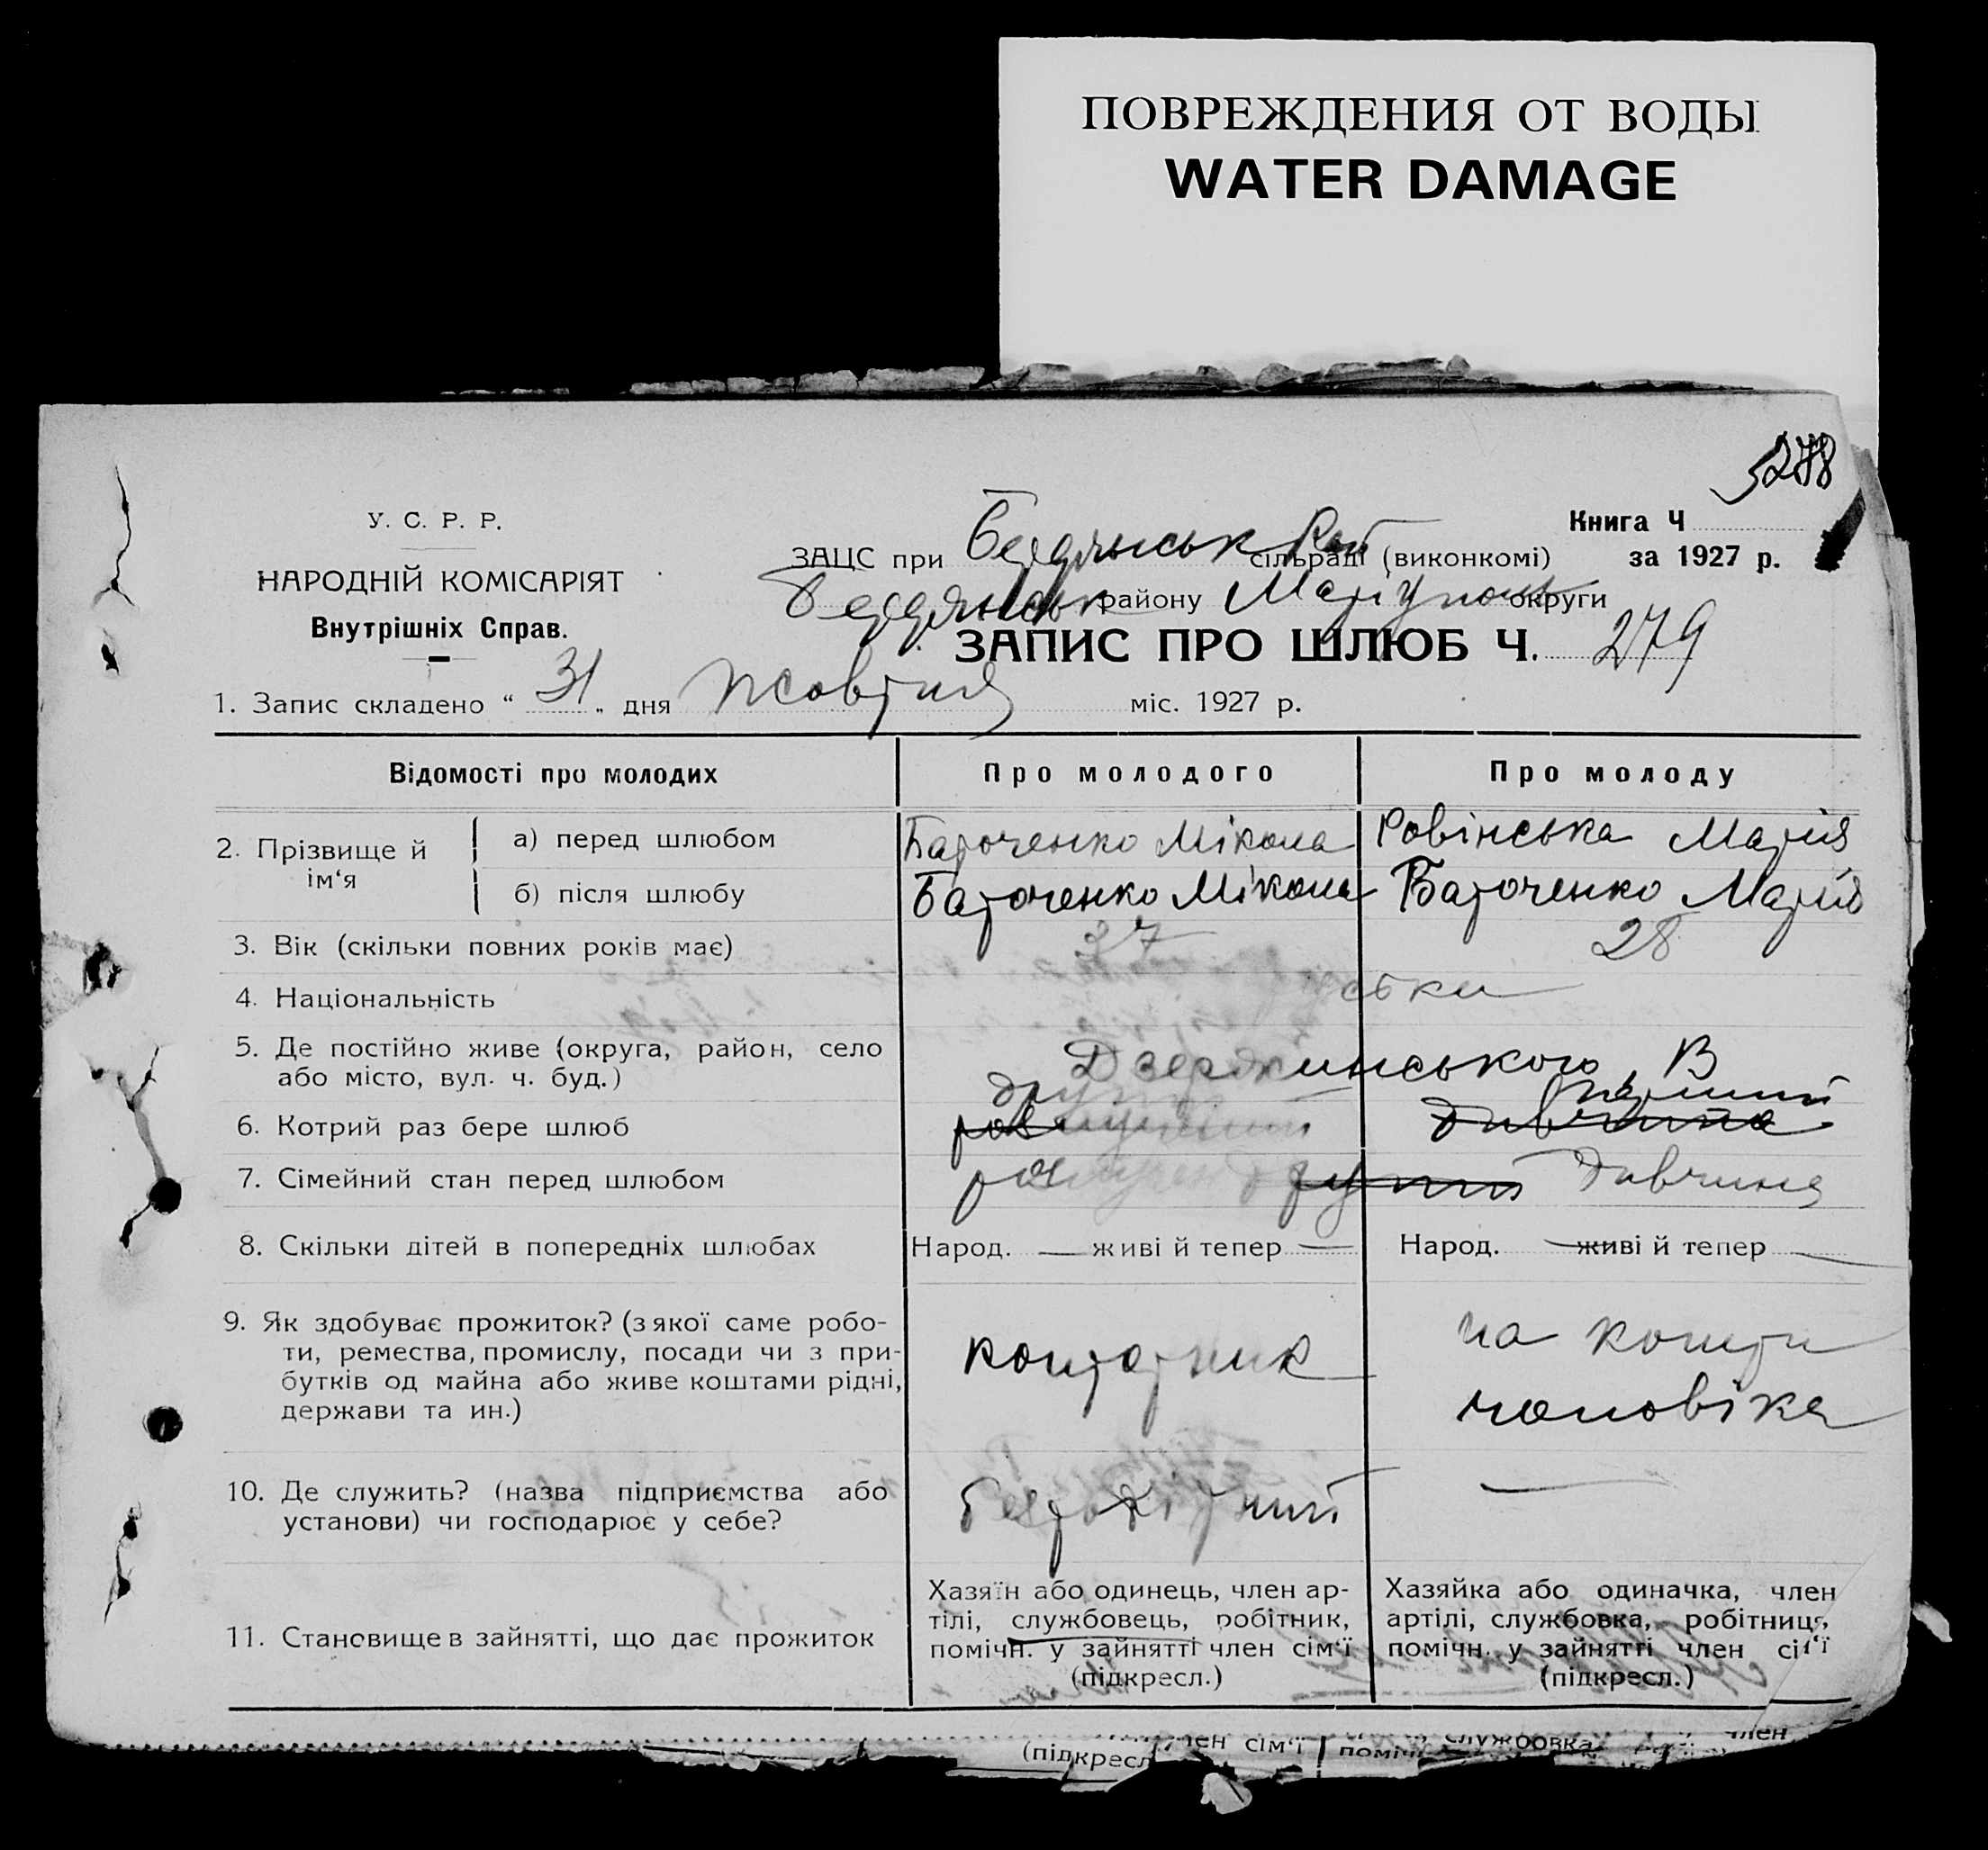 ПОВРЕЖДЕНИЯ ОТ ВОДЫ
WATER DAMAGE
278
У. С. Р. Р.
НАРОДНІЙ КОМІСАРІЯТ
Внутрішніх Справ.
Книга Ч
за 1927 р.
ЗАЦС при Бердянськ Рай сільраді (виконкомі)
Бердянськ району Маріупольськ округи
ЗАПИС ПРО ШЛЮБ Ч. 279
1. Запис складено “ 31 „ дня Жовтня міс. 1927 р.
Відомості про молодих Про молодого Про молоду
2. Прізвище й ім‘я
а) перед шлюбом Барченко Мікола Ровінська Марія
б) після шлюбу Барченко Мікола Барченко Марія
3. Вік (скільки повних років має) 37 28
4. Національність
5. Де постійно живе (округа, район, село
або місто, вул. ч. буд.)
Дзержинського, В
6. Котрий раз бере шлюб другий перший
дивчина
7. Сімейний стан перед шлюбом другий дивчина
8. Скільки дітей в попередніх шлюбах Народ. — живі й тепер — Народ. — живі й тепер —
9. Як здобуває прожиток? (з якої саме робо-
ти, ремества, промислу, посади чи з при-
бутків од майна або живе коштами рідні,
держави та ин.)
на кошти
чоловіка
10. Де служить? (назва підприємства або
установи) чи господарює у себе?
безробітний —
11. Становище в зайнятті, що дає прожиток
Хазяїн або одинець, член ар-
тілі, службовець, робітник,
помічн. у зайнятті член сім‘ї
(підкресл.)
Хазяйка або одиначка, член
артілі, службовка, робітниця,
помічн. у зайнятті член сім‘ї
(підкресл.)
член сім‘ї службовка член
(підкресл